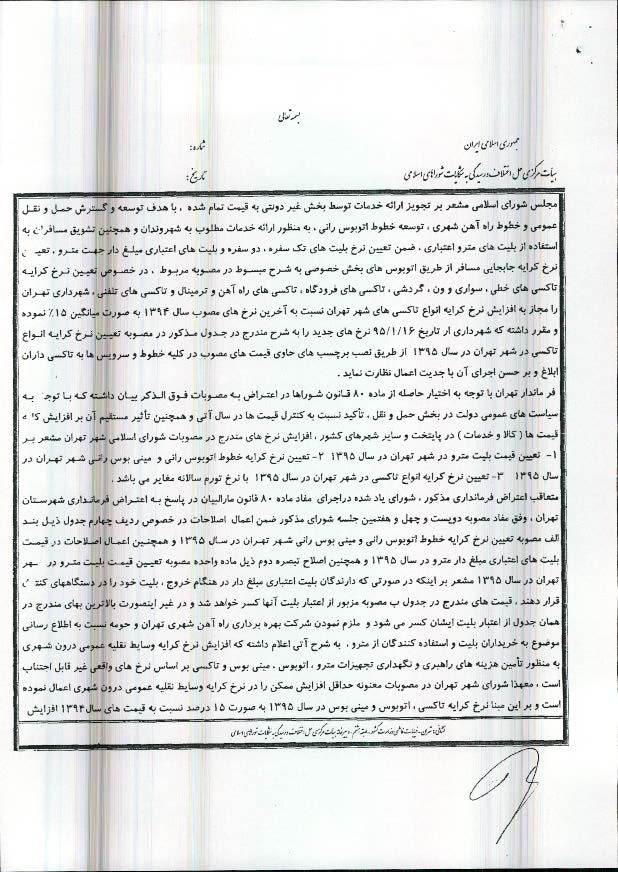 بسمه تعالی
جمهوری اسلامی ایران
شماره:
هیأت مرکزی حل اختلاف و رسیدگی به شکایات شوراهای اسلامی
تاریخ:
مجلس شورای اسلامی مشعر بر تجویز ارائه خدمات توسط بخش غیر دولتی به قیمت تمام شده ، با هدف توسعه و گسترش حمل و نقل
عمومی و خطوط راه آهن شهری ، توسعه خطوط اتوبوس رانی ، به منظور ارائه خدمات مطلوب به شهروندان و همچنین تشویق مسافران به
استفاده از بلیت های مترو اعتباری ، ضمن تعیین نرخ بلیت های تک سفره ، دو سفره و بلیت های اعتباری مبلغ دار جهت مترو ، تعیین
نرخ کرایه جابجایی مسافر از طریق اتوبوس های بخش خصوصی به شرح مبسوط در مصوبه مربوط ، در خصوص تعیین نرخ کرایه
تاکسی های خطی ، سواری و ون ، گردشی ، تاکسی های فرودگاه ، تاکسی های راه آهن و ترمینال و تاکسی های تلفنی ، شهرداری تهران
را مجاز به افزایش نرخ کرایه انواع تاکسی های شهر تهران نسبت به آخرین نرخ های مصوب سال ۱۳۹۴ به صورت میانگین ۱۵٪ نموده
و مقرر داشته که شهرداری از تاریخ ۹۵/۱/۱۶ نرخ های جدید را به شرح مندرج در جدول مذکور در مصوبه تعیین نرخ کرایه انواع
تاکسی در شهر تهران در سال ۱۳۹۵ از طریق نصب برچسب های حاوی قیمت های مصوب در کلیه خطوط و سرویس ها به تاکسی داران
ابلاغ و بر حسن اجرای آن با جدیت اعمال نظارت نماید .
فرماندار تهران با توجه به اختیار حاصله از ماده ۸۰ قانون شوراها در اعتراض به مصوبات فوق الذکر بیان داشته که با توجه به
سیاست های عمومی دولت در بخش حمل و نقل ، تأکید نسبت به کنترل قیمت ها در سال آتی و همچنین تأثیر مستقیم آن بر افزایش کلیه
قیمت ها ( کالا و خدمات ) در پایتخت و سایر شهرهای کشور ، افزایش نرخ های مندرج در مصوبات شورای اسلامی شهر تهران مشعر بر
۱- تعیین قیمت بلیت مترو در شهر تهران در سال ۱۳۹۵ ۲- تعیین نرخ کرایه خطوط اتوبوس رانی و مینی بوس رانی شهر تهران در
سال ۱۳۹۵ ۳- تعیین نرخ کرایه انواع تاکسی در شهر تهران در سال ۱۳۹۵ با نرخ تورم سالانه مغایر می باشد .
متعاقب اعتراض فرمانداری مذکور ، شورای یاد شده دراجرای مفاد ماده ۸۰ قانون مارالبیان در پاسخ به اعتراض فرمانداری شهرستان
تهران ، وفق مفاد مصوبه دویست و چهل و هفتمین جلسه شورای مذکور ضمن اعمال اصلاحات در خصوص ردیف چهارم جدول ذیل بند
الف مصوبه تعیین نرخ کرایه خطوط اتوبوس رانی و مینی بوس رانی شهر تهران در سال ۱۳۹۵ و همچنین اعمال اصلاحات در قیمت
بلیت های اعتباری مبلغ دار مترو در سال ۱۳۹۵ و همچنین اصلاح تبصره دوم ذیل ماده واحده مصوبه تعیین قیمت بلیت مترو در شهر
تهران در سال ۱۳۹۵ مشعر بر اینکه در صورتی که دارندگان بلیت اعتباری مبلغ دار در هنگام خروج ، بلیت خود را در دستگاههای کنترل
قرار دهند ، قیمت های مندرج در جدول ب مصوبه مزبور از اعتبار بلیت آنها کسر خواهد شد و در غیر اینصورت بالاترین بهای مندرج در
همان جدول از اعتبار بلیت ایشان کسر می شود و ملزم نمودن شرکت بهره برداری راه آهن شهری تهران و حومه نسبت به اطلاع رسانی
موضوع به خریداران بلیت و استفاده کنندگان از مترو ، به شرح آتی اعلام داشته که افزایش نرخ کرایه وسایط نقلیه عمومی درون شهری
به منظور تأمین هزینه های راهبری و نگهداری تجهیزات مترو ، اتوبوس ، مینی بوس و تاکسی بر اساس نرخ های واقعی غیر قابل اجتناب
است ، معهذا شورای شهر تهران در مصوبات معنونه حداقل افزایش ممکن را در نرخ کرایه وسایط نقلیه عمومی درون شهری اعمال نموده
است و بر این مبنا نرخ کرایه تاکسی ، اتوبوس و مینی بوس در سال ۱۳۹۵ به صورت ۱۵ درصد نسبت به قیمت های سال ۱۳۹۴ افزایش
نشانی : تهران - خیابان فاطمی - وزارت کشور - طبقه هشتم - دبیرخانه هیأت مرکزی حل اختلاف و رسیدگی به شکایات شوراهای اسلامی